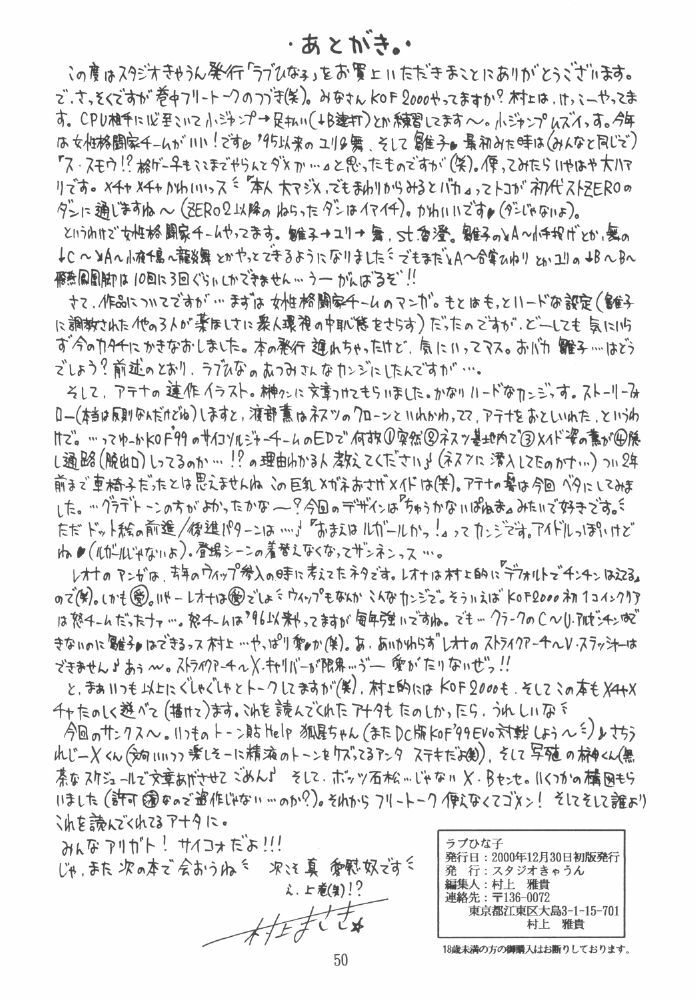 ・あとがき。・
この度はスタジオきゃうん発行「ラブひな子」をお買上いただきまことにありがとうございます。
で、さっそくですが巻中フリートークのつづき(笑)。みなさんKOF2000やってますか？村上は、けっこーやってま
す。CPU相手に 小ジャンプ→足払い(↓B連打)とか練習してます〜。小ジャンプムズイっす。今年
は女性格闘家チームがいい！です♥'95以来のユリ&舞、そして雛子♥最初みた時は(みんなと同じで)
『ス・スモウ!?格ゲーもここまでやらんとダメか…』と思ったものですが(笑)。使ってみたらいやはや大ハマ
リです。メチャメチャかわいいッス 『本人大マジメ、でもまわりからみるとバカ』ってトコが初代ストZEROの
ダンに通じますね〜(ZERO2以降のねらったダンはイマイチ)。かわいいです♥(ダンじゃないよ)。
というわけで女性格闘家チームやってます。雛子→ユリ→舞、st.香澄。雛子の A〜小手投げとか、舞の
↓C〜 A〜小夜千鳥〜龍炎舞とかやっとできるようになりました でもまだ A〜合掌ひねりとかユリの↓B〜B〜
飛燕鳳凰脚は10回に3回ぐらいしかできません…うーがんばるぞ!!
さて、作品についてですが…まずは女性格闘家チームのマンガ。もとはもっとハードな設定(雛子
に調教された他の3人が 衆人環視の中恥態をさらす)だったのですが、どーしても気にいら
ず今のカタチにかきなおしました。本の発行遅れちゃったけど、気にいってマス。おバカ雛子…はどう
でしょう？前述のとおり、ラブひなのあつみさんなカンジにしたんですが…。
そして、アテナの連作イラスト。榊クンに文章つけてもらいました。かなりハードなカンジっす。ストーリーフォ
ロー(本当は反則なんだけどね)しますと、渡部薫はネスツのクローンといれかわってて、アテナをおとしいれた、というわ
けで。…ってゆーかKOF'99のサイコソルジャーチームのEDで何故①突然②ネスツ基地内で③メイド姿の薫が④脱
し通路(脱出口)しってるのか…!?の理由わかる人教えてください♪(ネスツに潜入してたのかナ…)つい2年
前まで車椅子だったとは思えませんねこの巨乳メガネおさげメイドは(笑)。アテナの髪は今回ベタにしてみま
した。…グラデトーンのすがよかったかな〜？今回のデザインは『ちゅうかないぱねま』みたいで好きです。
ただドット絵の前進/後進パターンは…♪『おまえはルガールかっ！』ってカンジです。アイドルっぽいけど
ね♥(ルガールじゃないよ)。登場シーンの着替えなくなってザンネンッス…。
レオナのマンガは、去年のウィップ参入の時に考えてたネタです。レオナは村上的に『デフォルトでチンチンはえてる』
ので(笑)。しかも 。いやーレオナは でしょ ウィップもなんかこんなカンジで。そういえばKOF2000初1コインクリア
は怒チームだったナァ…。怒チームは'96以来やってますが毎年強いですね。でも…クラークのC〜U.アルゼンチンはで
きないのに雛子♥はできるッス村上…やっぱり愛♥か(笑)。あ、あいかわらずレオナのストライクアーチ〜V・スラッシャーは
できません♪あぅ〜。ストライクアーチ〜X.キャリバーが限界…うー愛がたりないぜっ!!
と、まあいつも以上にぐしゃぐしゃとトークしてますが(笑)、村上的にはKOF2000も、そしてこの本もメチャメ
チャたのしく遊べて(描けて)ます。これを読んでくれたアナタもたのしかったら、うれしいな
今回のサンクス〜。いつものトーン貼Help 狐月ちゃん(またDC版KOF'99Evo対戦しよう〜)♪さちう
れじーXくん(文句いいつつ楽しそーに精液のトーンをケズってるアンタ ステキだよ(笑))、そして写植の榊くん(無
茶なスケジュールで文章あげさせてごめん♪ そして、ポッツ石松…じゃないX・Bセンセ。いくつかの構図もら
いました(許可 なので盗作じゃない…のか?)。それからフリートーク使えなくてゴメン！そしてそして誰より
これを読んでくれてるアナタに。
みんなアリガト！サイコォだよ!!!
じゃ、また次の本で会おうね 次こそ真 愛慰奴です
え、上巻(笑)!?
村上まさき☆
ラブひな子
発行日：2000年12月30日初版発行
発　行：スタジオきゃうん
編集人：村上　雅貴
連絡先：〒136-0072
東京都江東区大島3-1-15-701
村上　雅貴
18歳未満の方の御購入はお断りしております。
50